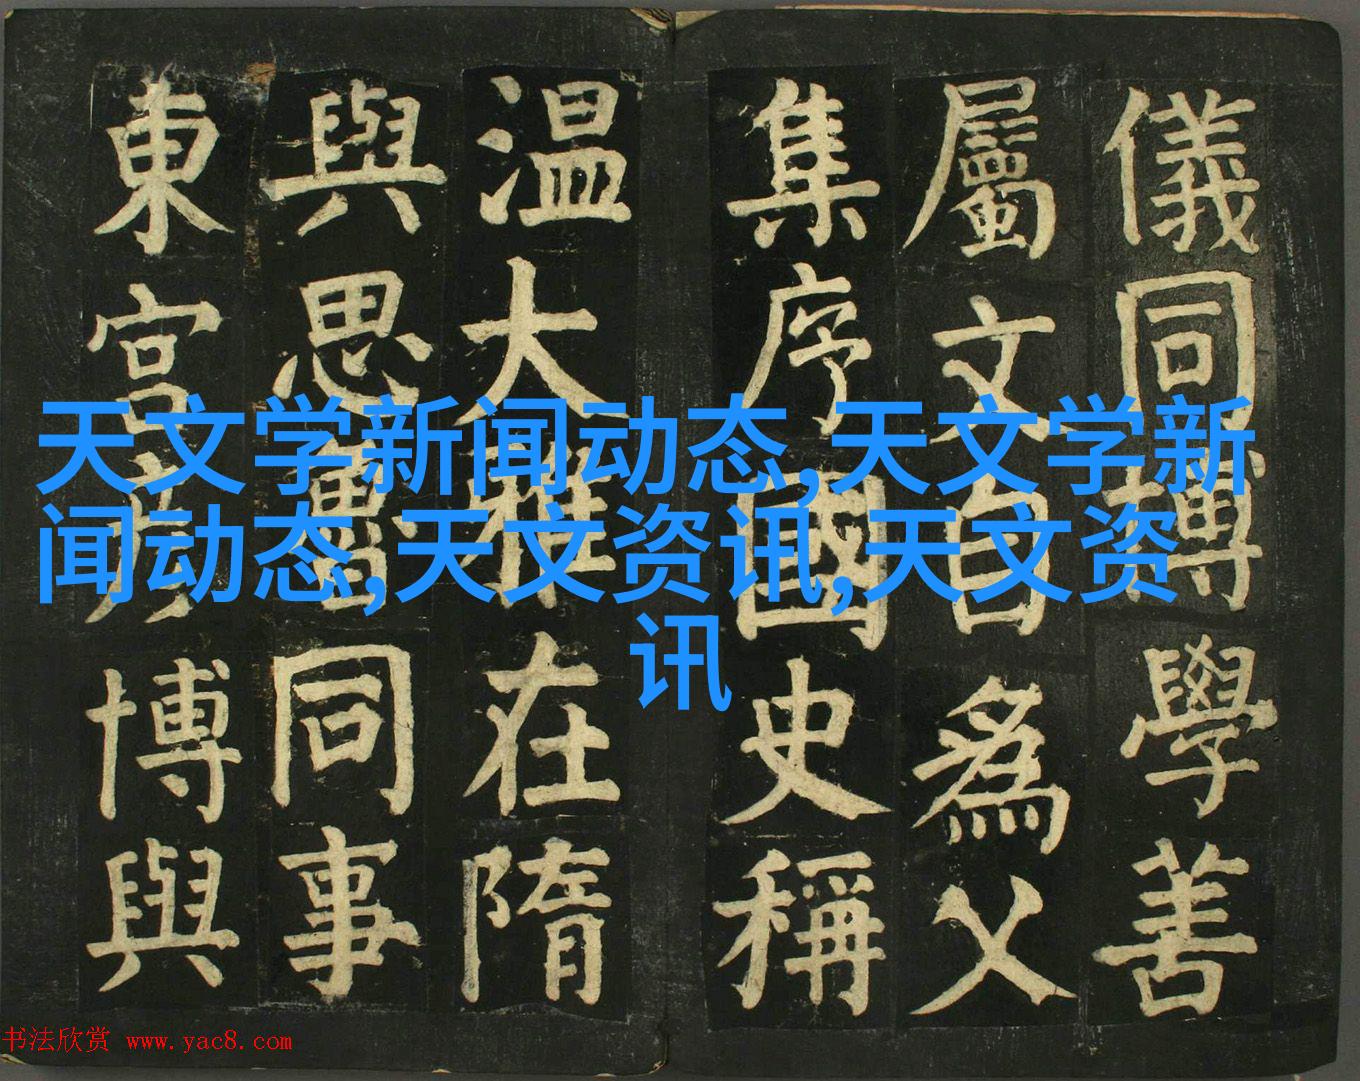 儀同博學善
屬文自爲父
集序國史稱
温大雅在隋
與思魯同事
東宮彥博與
天文学新闻动态,天文学新
闻动态,天文资讯,天文资
讯
书法欣赏 www.yac8.com